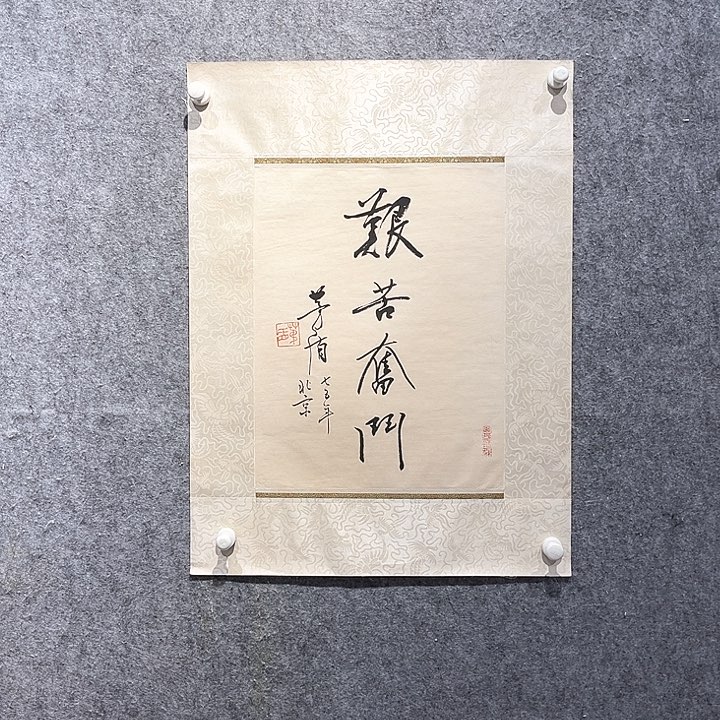 艱苦奮鬥
茅盾
七五年
北京